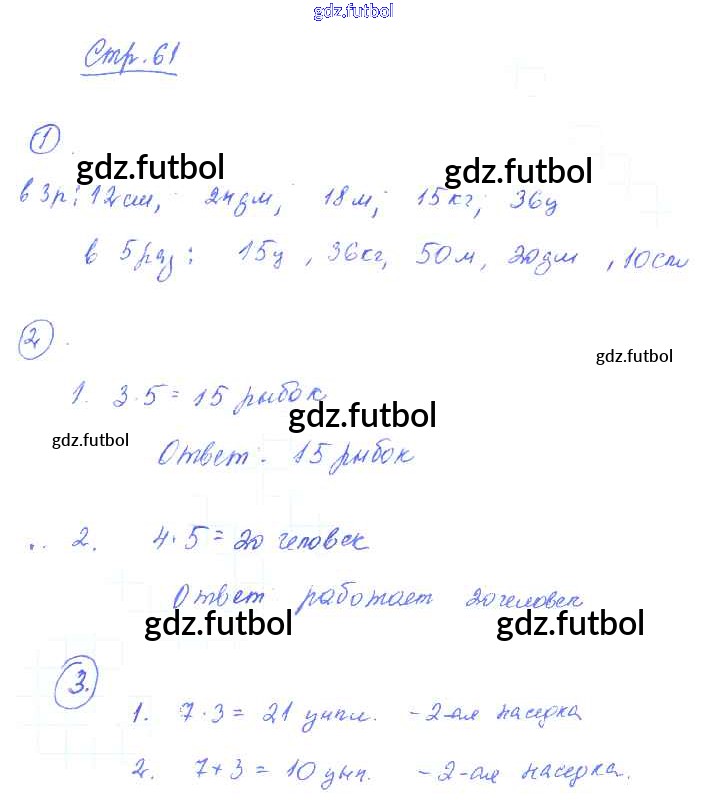 gdz.futbol
Стр. 61
1
gdz.futbol gdz.futbol
в 3р: 12см, 24дм; 18м; 15кг; 36ц
в 5раз: 15ц, 36кг, 50м, 20дм, 10см
2
gdz.futbol
1. 3·5 = 15 рыбок
gdz.futbol
gdz.futbol
Ответ: 15 рыбок
2. 4·5 = 20 человек
Ответ работает 20 человек
gdz.futbol gdz.futbol
3.
1. 7·3 = 21 ципл. - 2-ая наседка
2. 7+3 = 10 цып. - 2-ая наседка.